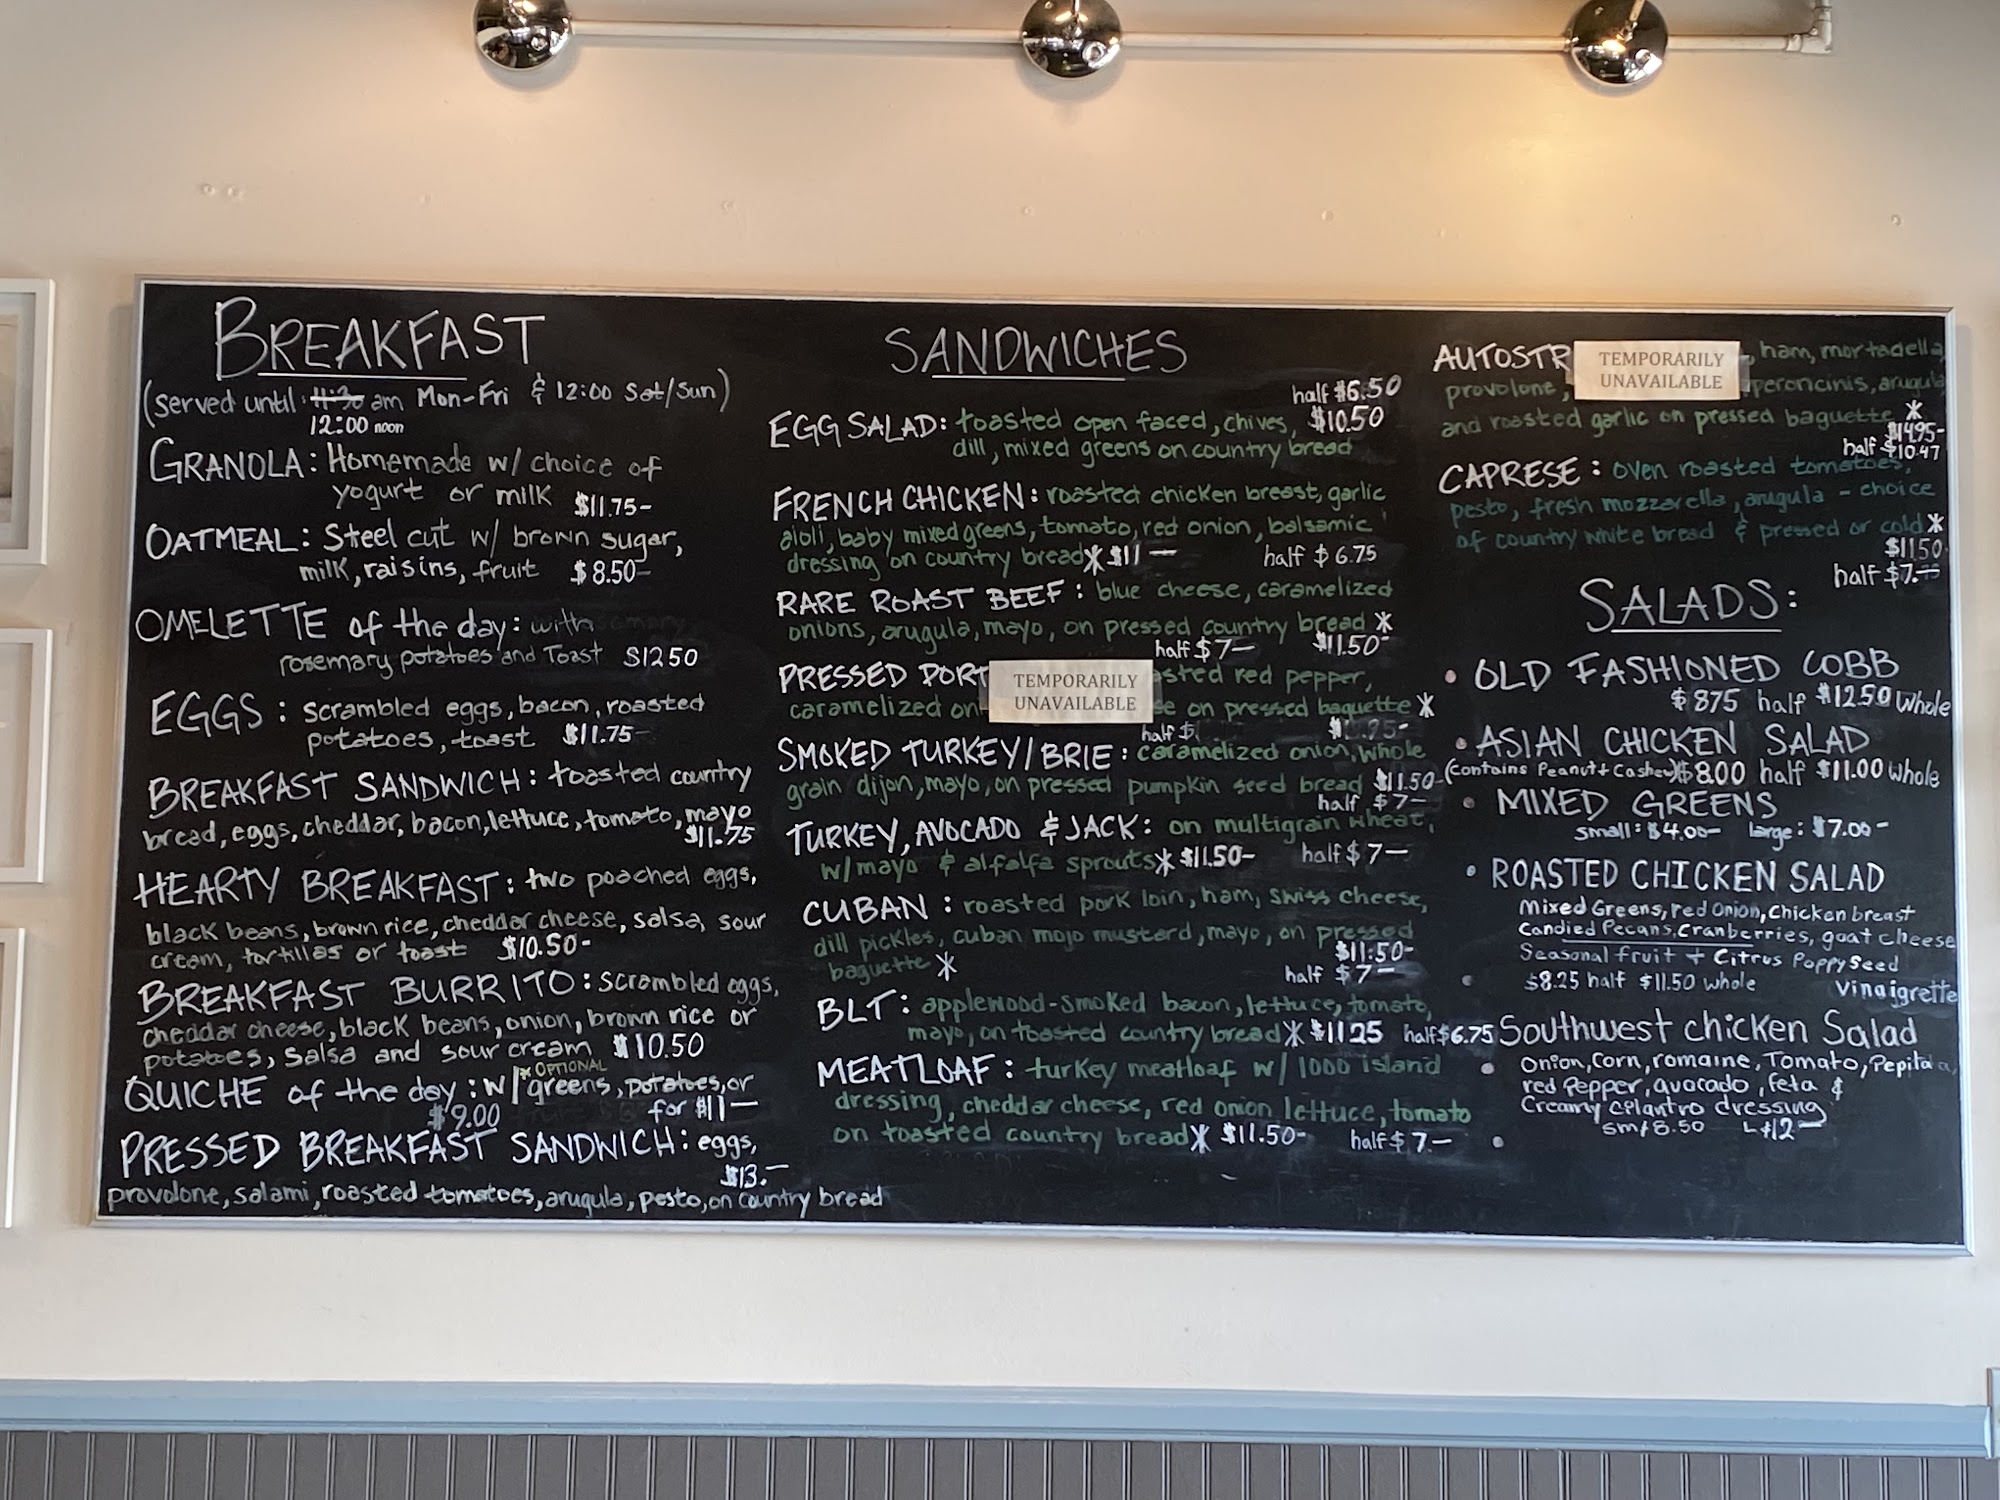 BREAKFAST
(served until 11:30 am Mon-Fri & 12:00 Sat/Sun)
12:00 noon
GRANOLA: Homemade w/ choice of
yogurt or milk $11.75-
OATMEAL: Steel cut w/ brown sugar,
milk, raisins, fruit $8.50-
OMELETTE of the day: with
rosemary potatoes and Toast $1250
EGGS: scrambled eggs, bacon, roasted
potatoes, toast $11.75-
BREAKFAST SANDWICH: toasted country
bread, eggs, cheddar, bacon, lettuce, tomato, mayo
$11.75
HEARTY BREAKFAST: two poached eggs,
black beans, brown rice, cheddar cheese, salsa, sour
cream, tortillas or toast $10.50-
BREAKFAST BURRITO: scrambled eggs,
cheddar cheese, black beans, onion, brown rice or
potatoes, salsa and sour cream $10.50
* OPTIONAL
QUICHE of the day: w/ greens, potatoes, or
$9.00 for $11—
PRESSED BREAKFAST SANDWICH: eggs,
$13.—
provolone, salami, roasted tomatoes, arugula, pesto, on country bread
SANDWICHES
half $6.50
EGG SALAD: toasted open faced, chives, $10.50
dill, mixed greens on country bread
FRENCH CHICKEN: roasted chicken breast, garlic
aioli, baby mixed greens, tomato, red onion, balsamic
dressing on country bread * $11— half $6.75
RARE ROAST BEEF: blue cheese, caramelized
onions, arugula, mayo, on pressed country bread *
half $7— $11.50-
PRESSED PORT
TEMPORARILY
UNAVAILABLE
red pepper,
caramelized on pressed baguette *
half $
SMOKED TURKEY/BRIE: caramelized onion, whole
grain dijon, mayo, on pressed pumpkin seed bread $11.50-
half $7—
TURKEY, AVOCADO & JACK: on multigrain wheat,
w/ mayo & alfalfa sprouts * $11.50- half $7—
CUBAN: roasted pork loin, ham, swiss cheese,
dill pickles, cuban mojo mustard, mayo, on pressed
$11:50-
baguette * half $7—
BLT: applewood-smoked bacon, lettuce, tomato,
mayo, on toasted country bread * $1125 half $6.75
MEATLOAF: turkey meatloaf w/ 1000 island
dressing, cheddar cheese, red onion, lettuce, tomato
on toasted country bread * $11.50- half $7—
AUTOSTR
TEMPORARILY
UNAVAILABLE
, ham, mortadella,
provolone, peroncinis, arugula
and roasted garlic on pressed baguette *
$1495-
half $10.47
CAPRESE: oven roasted tomatoes,
pesto, fresh mozzarella, arugula - choice
of country white bread & pressed or cold *
$1150
half $7.—
SALADS:
• OLD FASHIONED COBB
$875 half $1250 Whole
• ASIAN CHICKEN SALAD
(contains Peanut + Cashew) $8.00 half $11.00 whole
• MIXED GREENS
small: $4.00— large: $7.00-
• ROASTED CHICKEN SALAD
Mixed Greens, red Onion, Chicken breast
Candied Pecans, Cranberries, goat cheese
Seasonal fruit + Citrus Poppy Seed
$8.25 half $11.50 whole Vinaigrette
Southwest chicken Salad
Onion, corn, romaine, Tomato, Pepita
red Pepper, avocado, feta &
Creamy cilantro dressing
sm $8.50 L $12—